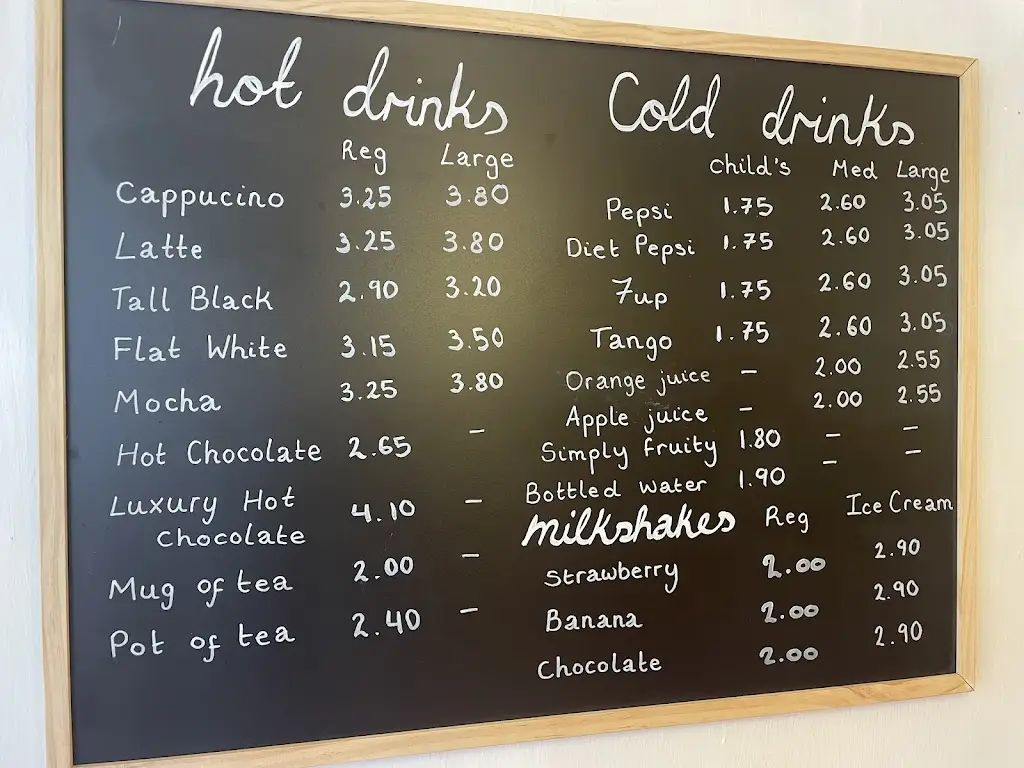 hot drinks
Reg Large
Cappucino 3.25 3.80
Latte 3.25 3.80
Tall Black 2.90 3.20
Flat White 3.15 3.50
Mocha 3.25 3.80
Hot Chocolate 2.65 –
Luxury Hot
Chocolate 4.10 –
Mug of tea 2.00 –
Pot of tea 2.40 –
Cold drinks
child's Med Large
Pepsi 1.75 2.60 3.05
Diet Pepsi 1.75 2.60 3.05
7up 1.75 2.60 3.05
Tango 1.75 2.60 3.05
Orange juice – 2.00 2.55
Apple juice – 2.00 2.55
Simply fruity 1.80 – –
Bottled water 1.90 – –
milkshakes Reg Ice Cream
Strawberry 2.00 2.90
Banana 2.00 2.90
Chocolate 2.00 2.90